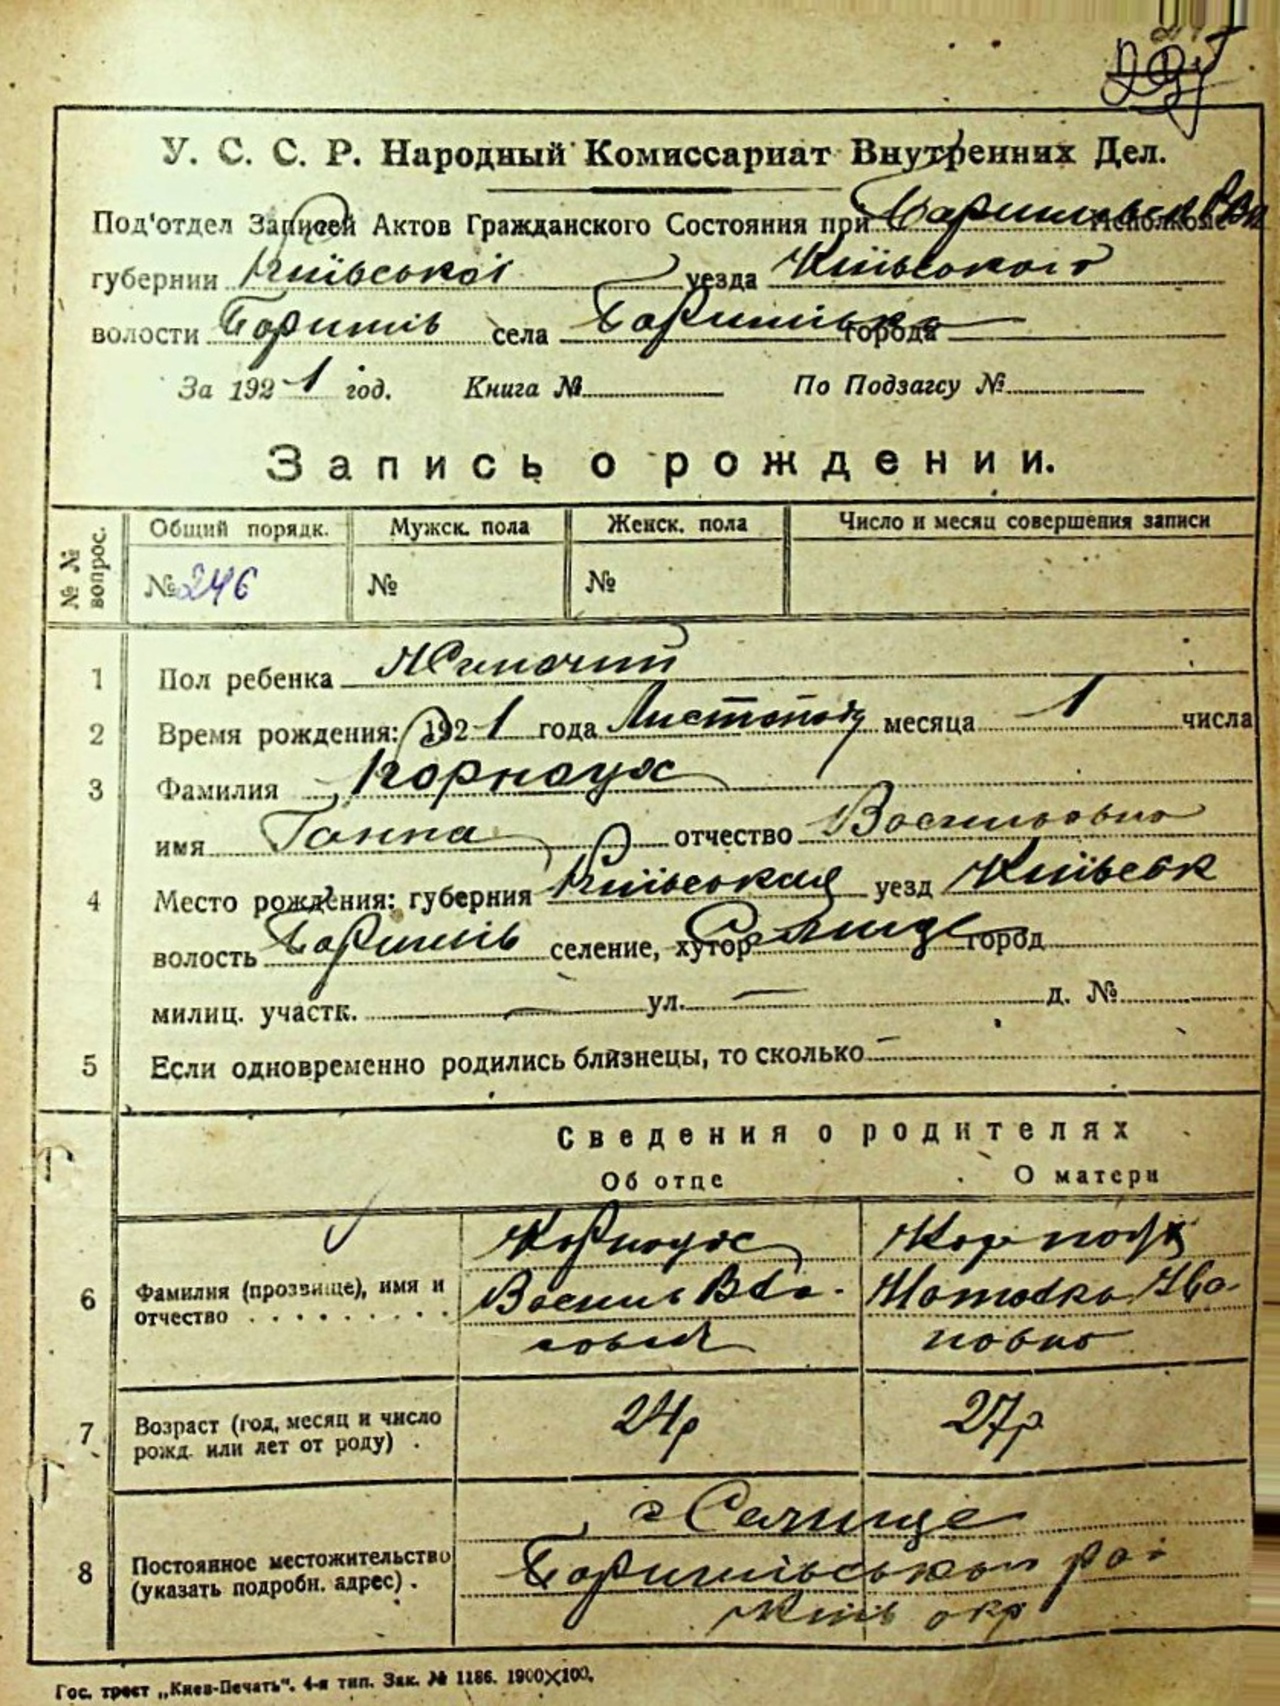 У. С. С. Р. Народный Комиссариат Внутренних Дел.
Под'отдел Записей Актов Гражданского Состояния при Исполкоме
губернии Київської уезда Київського
волости Баришів села города
За 1921 год. Книга № По Подзагсу №
Запись о рождении.
№ № вопрос. Общий порядк. Мужск. пола Женск. пола Число и месяц совершения записи
№ 246 № №
1 Пол ребенка Жіночий
2 Время рождения: 1921 года Листопад месяца 1 числа
3 Фамилия Корнаух
имя Ганна отчество Васильовна
4 Место рождения: губерния Київская уезд Київськ
волость Баришів селение, хутор Селище город
милиц. участк. — ул. — д. №
5 Если одновременно родились близнецы, то сколько —
Сведения о родителях
Об отце О матери
6 Фамилия (прозвище), имя и отчество
Корноух Корноух
Василь Вла- Ива-
сович новно
7 Возраст (год, месяц и число рожд. или лет от роду) . 24р 27р
8 Постоянное местожительство (указать подробн. адрес) .
с Селище
Баришівського ра-
Київ окр
Гос. трест „Киев-Печать“. 4-я тип. Зак. № 1186. 1900×100.